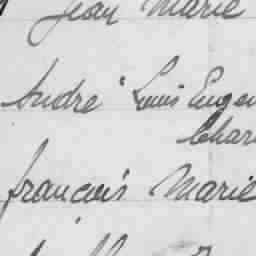 Jean Marie
André Louis Eugen
Char
françois Marie